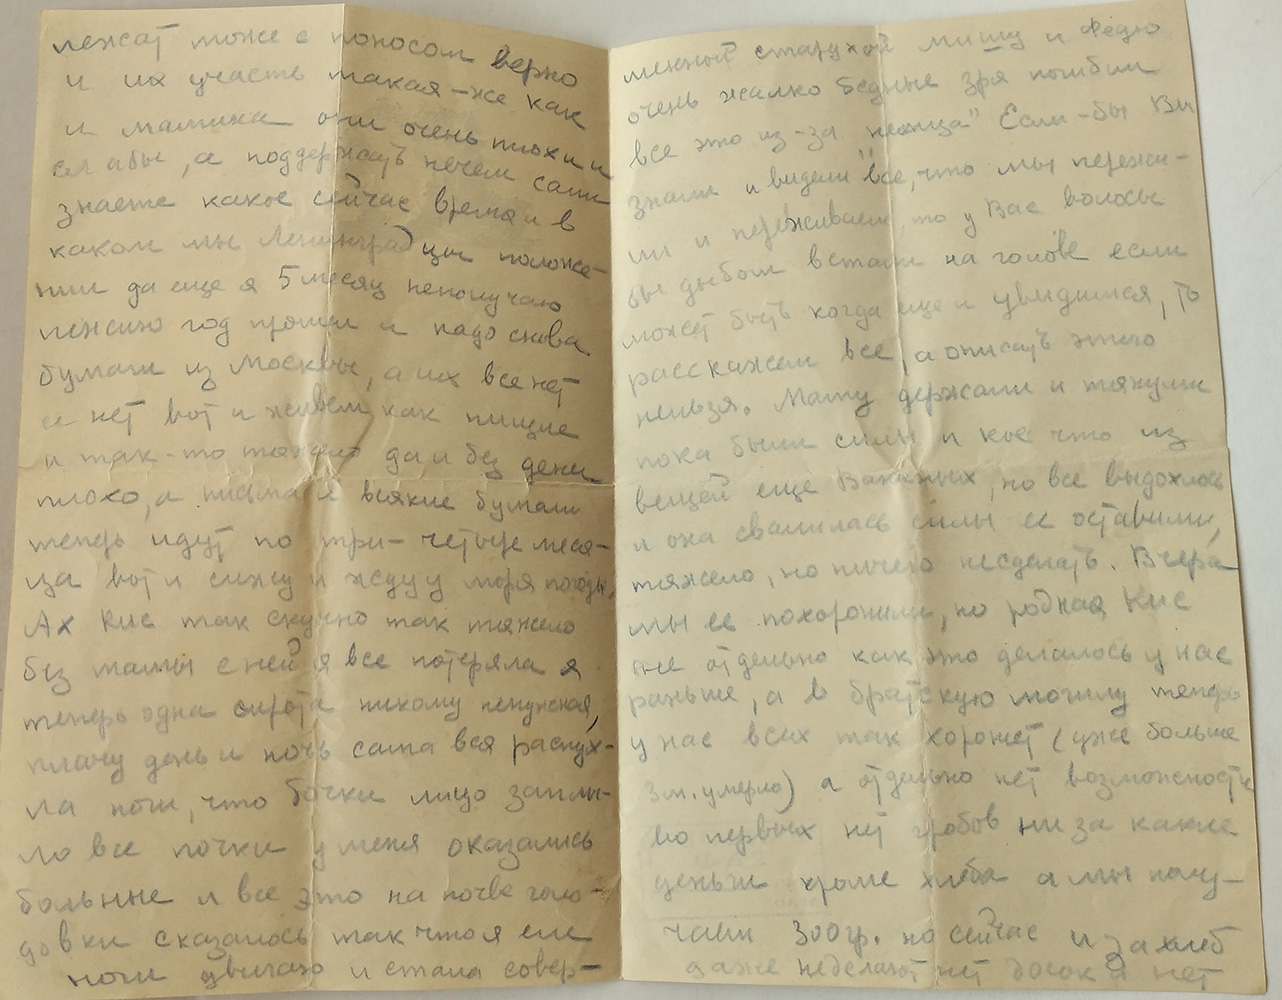 лежат тоже с поносом верно
и их участь такая-же как
и мамина они очень плохи и
слабы, а поддержать нечем сами
знаете какое сейчас время и в
каком мы Ленинградцы положе-
нии да еще я 5 месяц неполучаю
пенсию год прошел и надо снова
бумаги из Москвы, а их все нет
и нет вот и живем как нищие
и так-то тяжело да и без денег
плохо, а письма и всякие бумаги
теперь идут по три-четыре меся-
ца вот и сижу и жду у моря погоды,
Ах Кис так скучно так тяжело
без мамы с ней я все потеряла я
теперь одна сирота никому ненужная,
плачу день и ночь сама вся распух-
ла ноги, что бочки лицо заплы-
ло все почки у меня оказались
больные и все это на почве голо-
довки сказалось так что я еле
ноги двигаю и стала совер-
менной старухой Мишу и Федю
очень жалко бедные зря погибли
все это из-за "немца" Если-бы Вы
знали и видели все, что мы пережи-
ли и переживаем, то у Вас волосы
бы дыбом встали на голове если
может быть когда еще и увидимся, то
расскажем все, а описать этого
нельзя. Маму держали и тянули
пока были силы и кое что из
вещей еще Ваниных, но все выдохлось
и она свалилась силы ее оставили,
тяжело, но ничего несделать. Вчера
мы ее похоронили, но родная Кис
не отдельно как это делалось у нас
раньше, а в братскую могилу теперь
у нас всех так хоронят (уже больше
3 м. умерло) а отдельно нет возможности
во первых нет гробов ни за какие
деньги кроме хлеба а мы полу-
чаем 300гр. но сейчас и за хлеб
даже неделают нет досок и нет